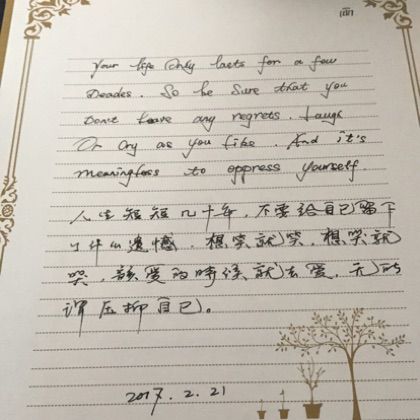 Your life Only lasts for a few
Deades. So be Sure that you
Don't leave any regrets. Laugh
Or Cry as you like. And it's
meaningless to oppress yourself.
人生短短几十年，不要给自己留下
了什么遗憾，想笑就笑，想哭就
哭，該爱的時候就去爱，无
压抑自己。
2017.2.21